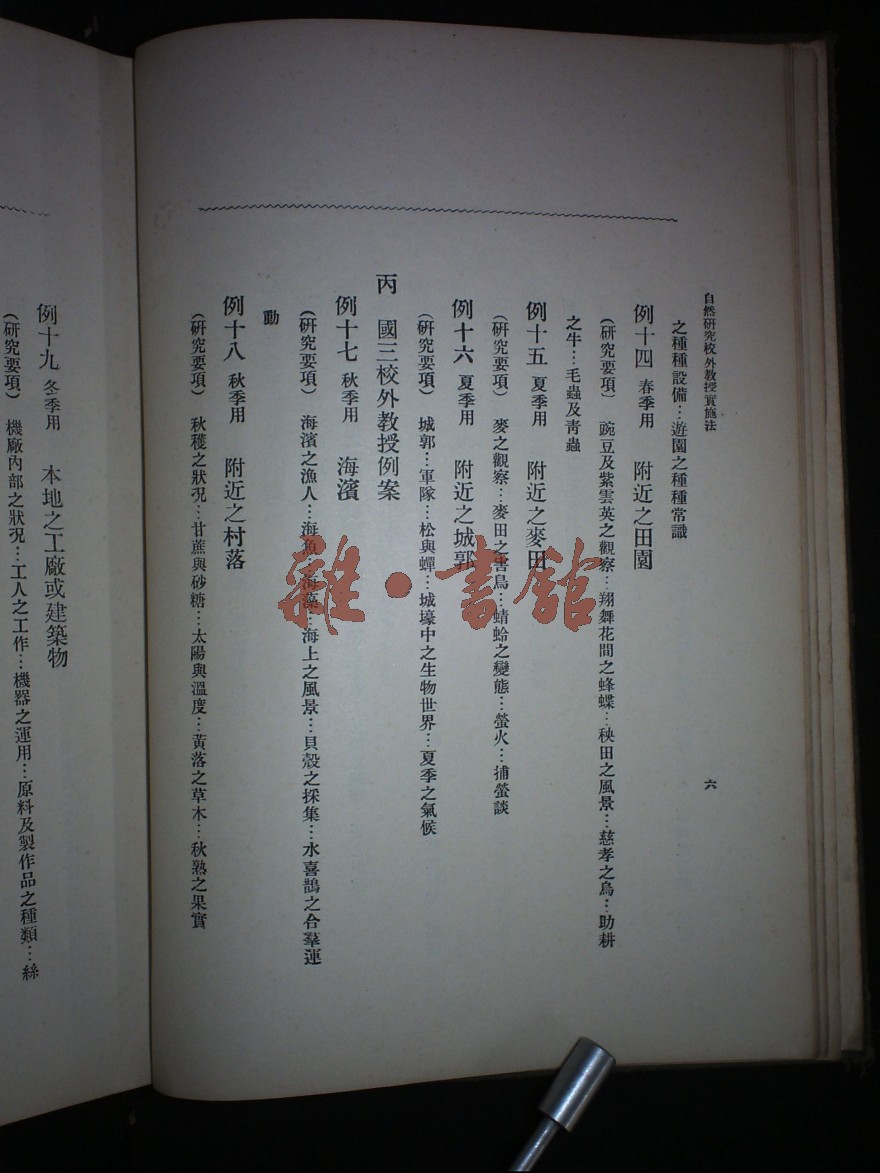 自然研究校外教授實施法
六
之種種設備…遊園之種種常識
例十四 春季用 附近之田園
(研究要項) 豌豆及紫雲英之觀察…翔舞花間之蜂蝶…秧田之風景…慈孝之烏…助耕
之牛…毛蟲及靑蟲
例十五 夏季用 附近之麥田
(研究要項) 麥之觀察…麥田之害鳥…蜻蛉之變態…螢火…捕螢談
例十六 夏季用 附近之城郭
(研究要項) 城郭…軍隊…松與蟬…城壕中之生物世界…夏季之氣候
丙 國三校外教授例案
例十七 秋季用 海濱
(研究要項) 海濱之漁人…海魚…海藻…海上之風景…貝殼之採集…水喜鵲之合羣運
動
例十八 秋季用 附近之村落
(研究要項) 秋穫之狀況…甘蔗與砂糖…太陽與溫度…黃落之草木…秋熟之果實
例十九 冬季用 本地之工廠或建築物
(研究要項) 機廠內部之狀況…工人之工作…機器之運用…原料及製作品之種類…絲
雜·書館